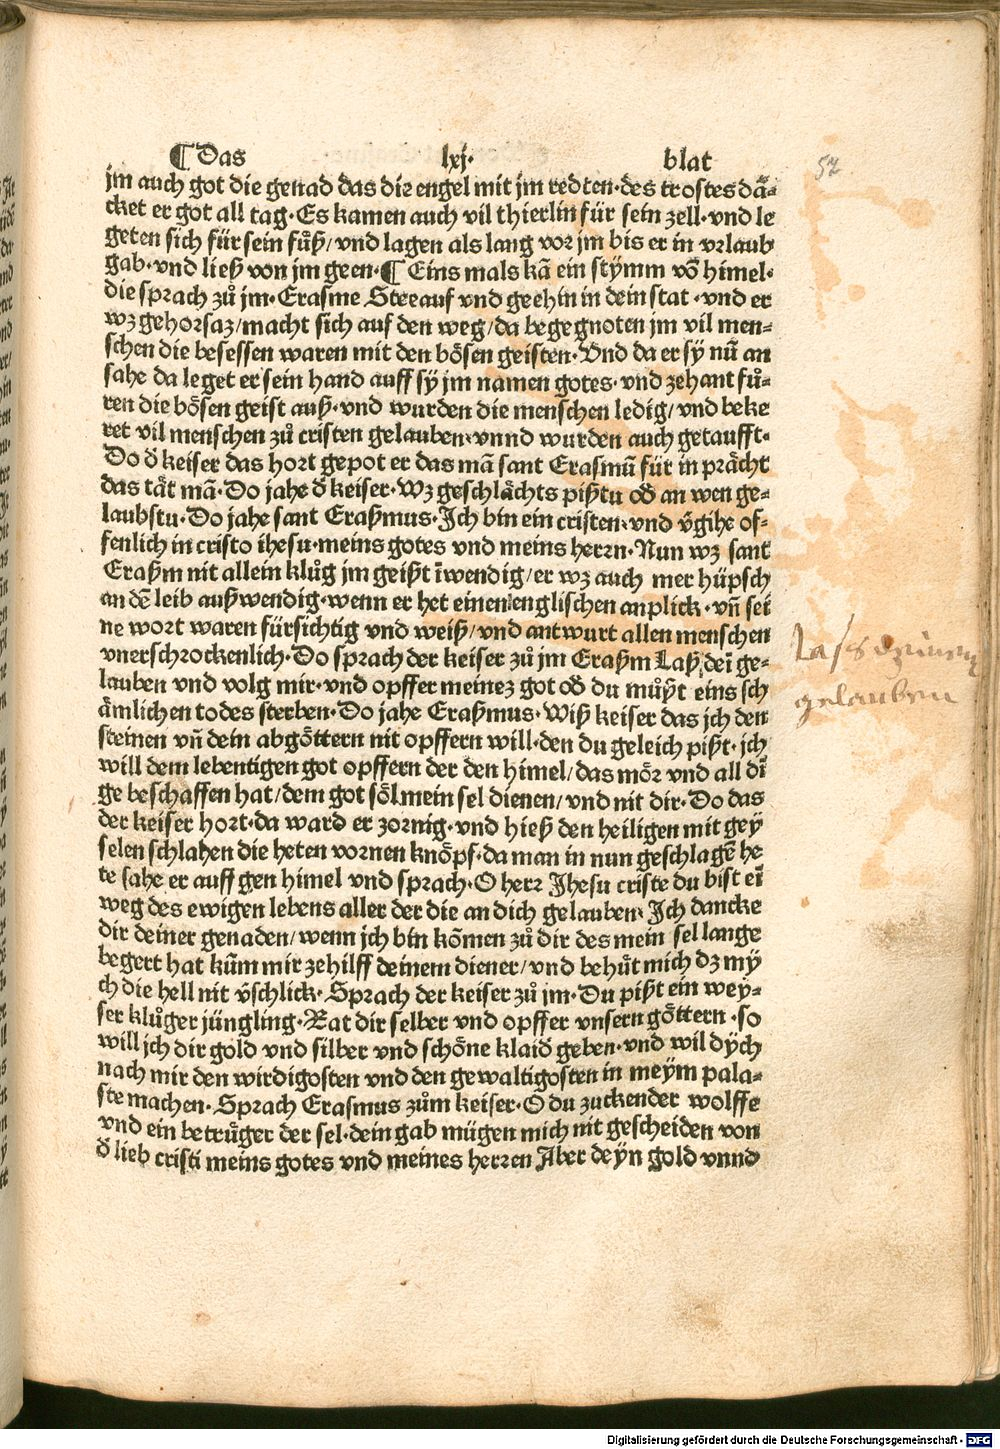 ¶ Das lxj. blat
57
jm auch got die genad das die engel mit jm redten·des trostes dã-
cket er got all tag·Es kamen auch vil thierlin für sein zell·vnd le
geten sich für sein fůß/vnd lagen als lang vor jm bis er in vrlaub
gab·vnd ließ von jm geen·¶ Eins mals kã ein stymm võ himel·
die sprach zů jm·Erasme Stee auf vnd gee hin in dein stat·vnd er
wz gehorsaz/macht sich auf den weg/da begegnoten jm vil men-
schen die besessen waren mit den bösen geisten·Vnd da er sy nũ an
sahe da leget er sein hand auff sy jm namen gotes·vnd zehant fů-
ren die bösen geist auß·vnd wurden die menschen ledig/vnd beke
ret vil menschen zů cristen gelauben·vnnd wurden auch getaufft·
Do d̕ keiser das hort gepot er das mã sant Erasmũ für in prächt
das tät mã·Do jahe d̕ keiser·Wz geschlächts pistu od̕ an wen ge-
laubstu·Do jahe sant Eraßmus·Ich bin ein cristen·vnd v̕gihe of-
fenlich in cristo ihesu·meins gotes vnd meins herrn·Nun wz sant
Eraßm nit allein klůg jm geißt ĩwendig/er wz auch mer hüpsch
an dẽ leib außwendig·wenn er het einen englischen anplick·vñ sei
ne wort waren fürsichtig vnd weiß/vnd antwurt allen menschen
vnerschrockenlich·Do sprach der keiser zů jm Eraßm Laß deĩ ge-
lauben vnd volg mir·vnd opffer meinez got od̕ du můst eins sch
ämlichen todes sterben·Do jahe Eraßmus·Wiß keiser das jch den
steinen vñ dein abgöttern nit opffern will·den du geleich pist·jch
will dem lebentigen got opffern der den himel/das mör vnd all dĩ
ge beschaffen hat/dem got söl mein sel dienen/vnd nit dir·Do das
der keiser hort·da ward er zornig·vnd hieß den heiligen mit gey
selen schlahen die heten vornen knöpf·da man in nun geschlagẽ he
te sahe er auff gen himel vnd sprach·O herr Jhesu criste du bist eĩ
weg des ewigen lebens aller der die an dich gelauben·Ich dancke
dir deiner genaden/wenn jch bin kõmen zů dir des mein sel lange
begert hat kũm mir zehilff deinem diener/vnd behüt mich dz my
ch die hell nit v̕schlick·Sprach der keiser zů jm·Du pist ein wey-
ser klůger jüngling·Rat dir selber vnd opffer vnsern göttern·so
will jch dir gold vnd silber vnd schöne klaid̕ geben·vnd wil dych
nach mir den wirdigosten vnd den gewaltigosten in meym pala-
ste machen·Sprach Erasmus zům keiser·O du zuckender wolffe
vnd ein betrüger der sel·dein gab mügen mich nit gescheiden von
d̕ lieb cristi meins gotes vnd meines herren Aber deyn gold vnnd
Lass deinen
gelauben
Digitalisierung gefördert durch die Deutsche Forschungsgemeinschaft - DFG